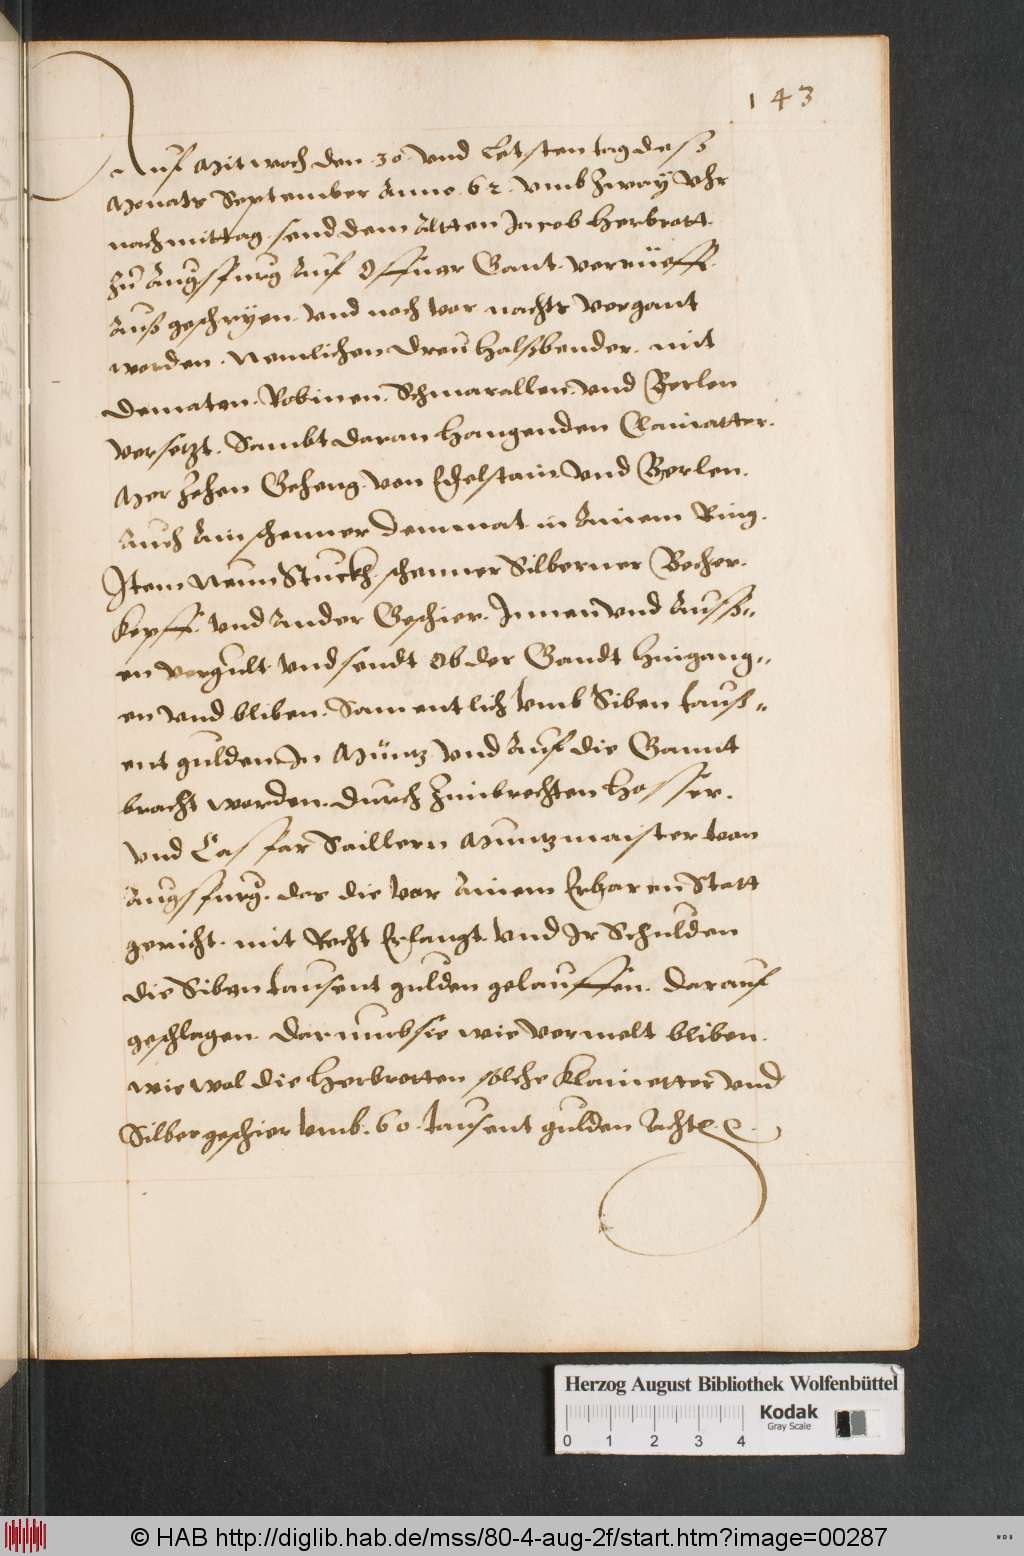 143
Auf Mitwoch den .30. vnd letsten tag deß
Monats September Anno .62. vmb Zway Vhr
nachmittag send dem Altten Jacob Herbrott
Zu Augspurg Auf Offner Gant verrüefft
Auß geschryen vnd noch vor nachts vergant
worden. Nemlichen dreu halßbender. mit
Dematen. Robinen. Schmarallen. vnd Berlen
versetzt. Sambt daran hangenden Clainatter.
Mer Zehen Geheng von Edelstain vnd Berlen.
Auch Ain schenner demmat in Ainem Ring.
Item Neun Stuckh schenner Silberner Becher.
Kepff. vnd Ander Geschier. Innen vnd Auss„
en vergult vnd sendt Ob der Gandt hingang„
en vnd bliben. Samentlich vmb Siben tauß„
ent gulden In Müntz vnd Auf die Ganntt
bracht worden. durch Zimbrechten Hosser.
vnd Caspar Saillern Muntzmaister von
Augspurg. des die vor Ainem Erbaren Statt
gericht. mit Recht Erlangt vnd Ir Schulden
die Siben tausent gulden gelauffen. darauf
geschlagen. darumb sie wie vermelt bliben.
wie wol die Herbrotten solche Klainetter vnd
Silbergeschier vmb .60. tausent gulden Acht
Herzog August Bibliothek Wolfenbüttel
Kodak
Gray Scale
0 1 2 3 4
© HAB http://diglib.hab.de/mss/80-4-aug-2f/start.htm?image=00287